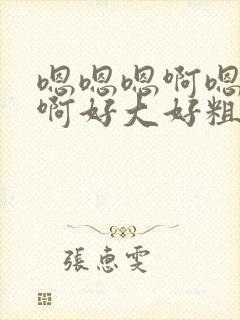 嗯嗯嗯啊嗯
啊好大好粗
張惠雯